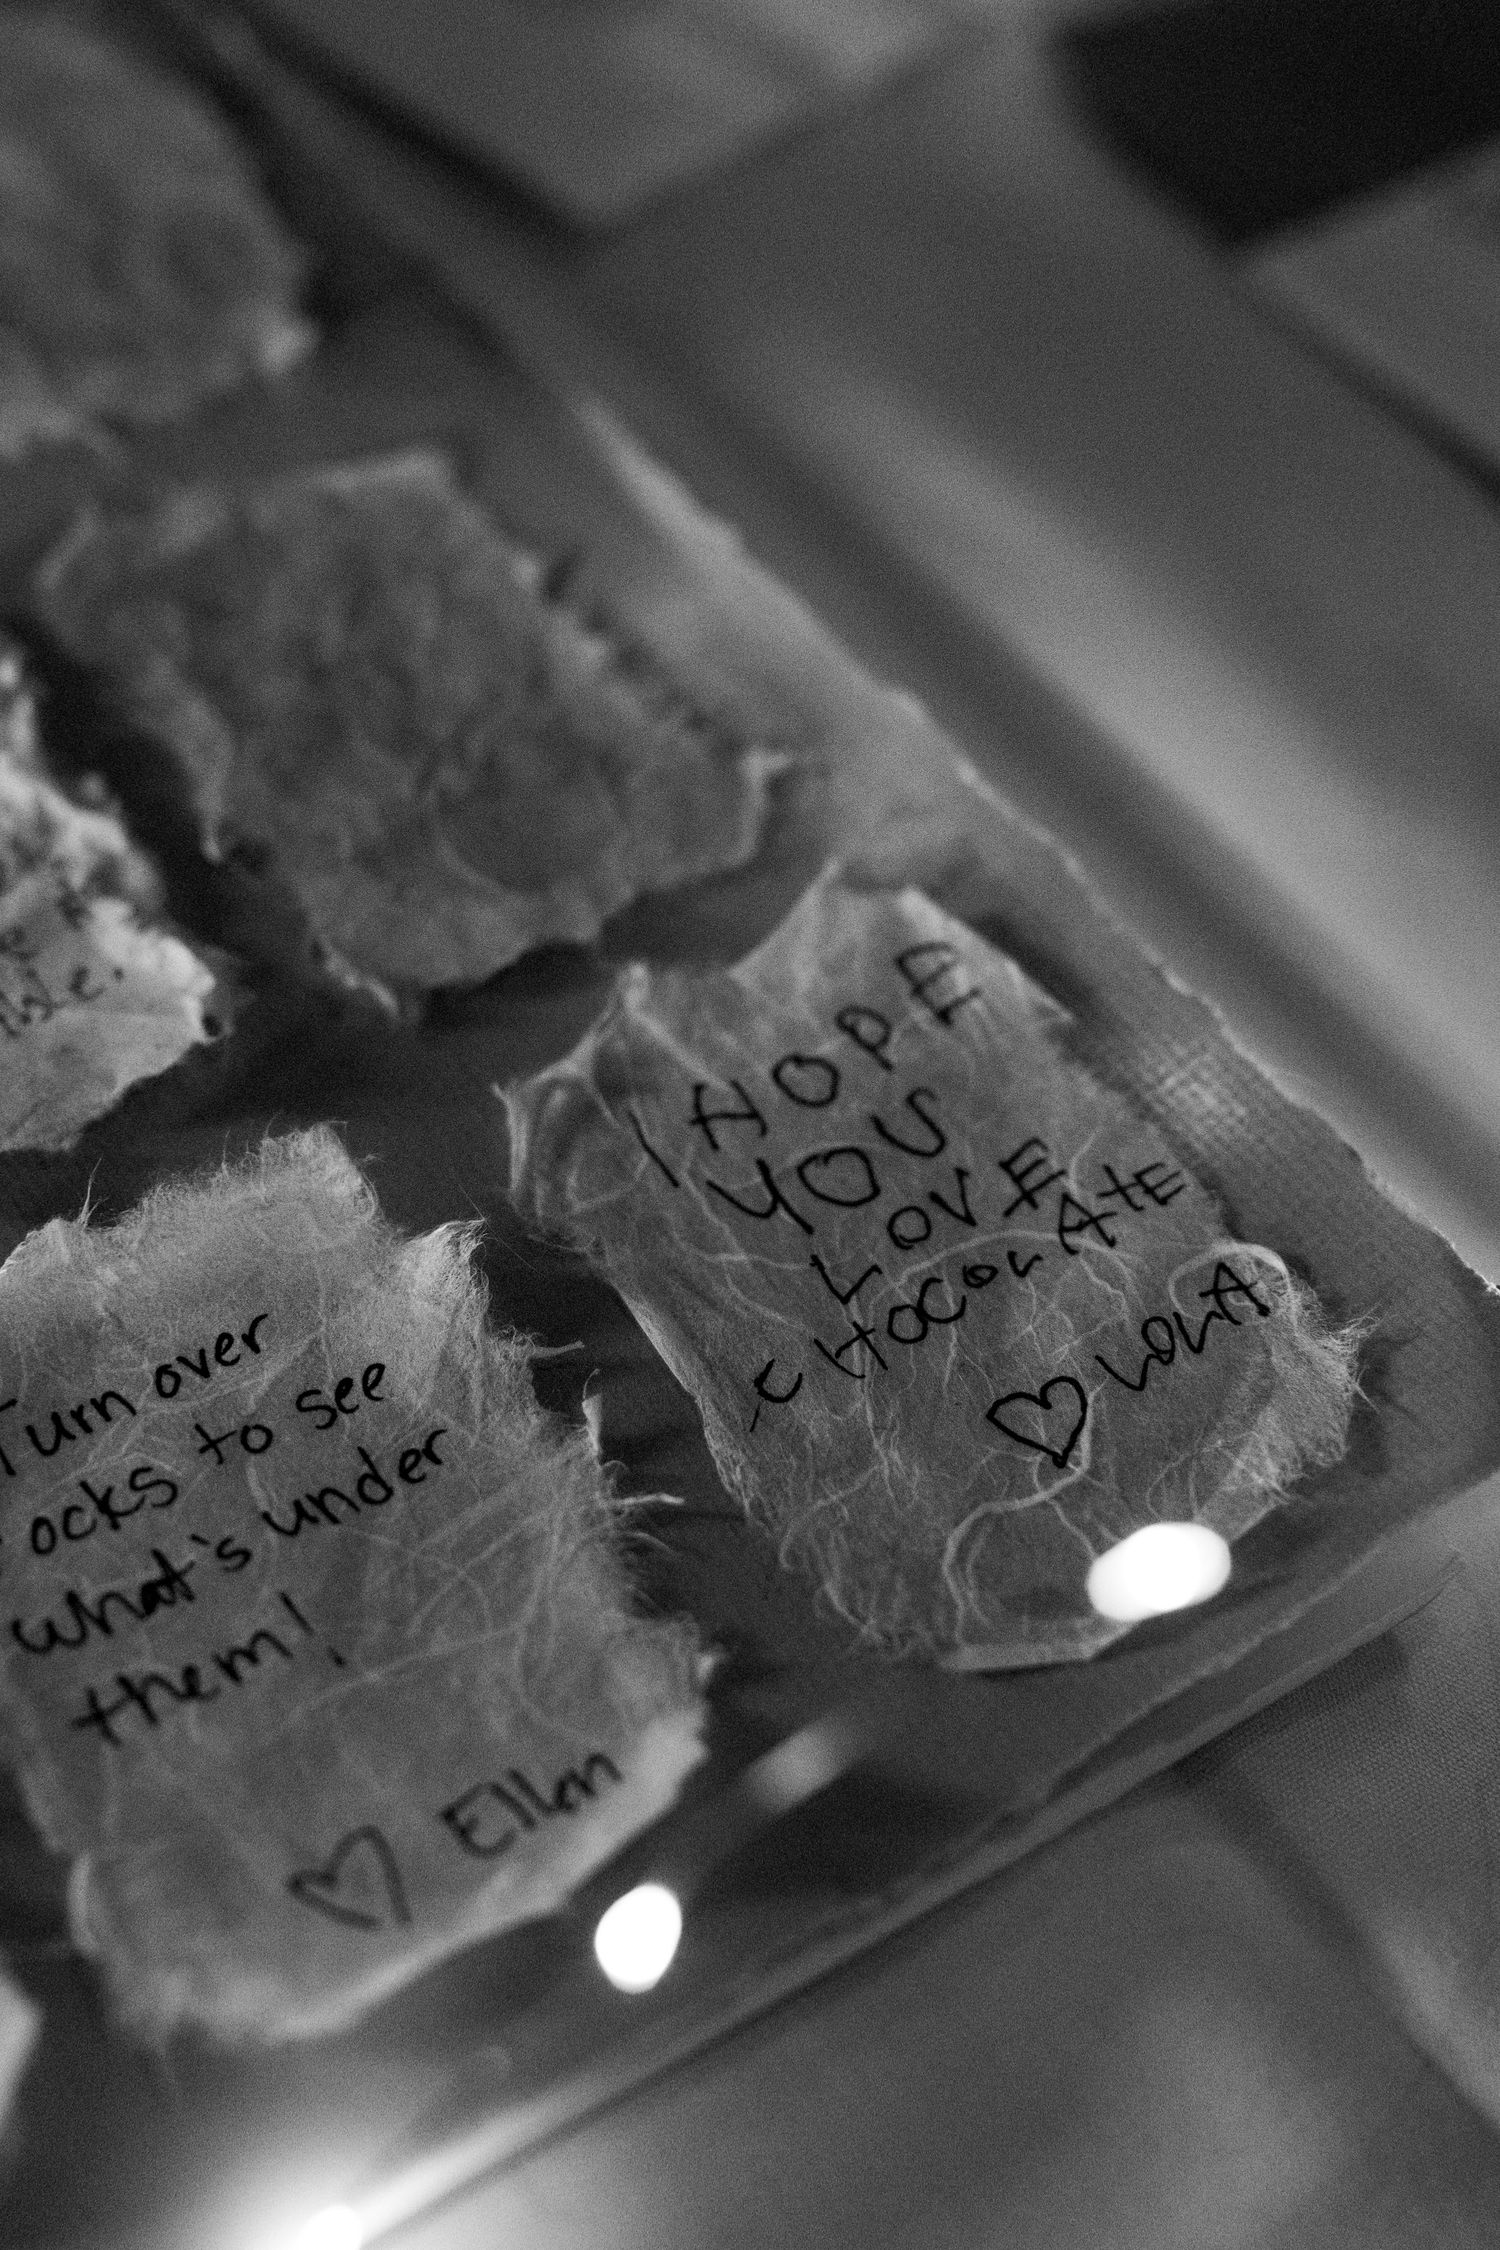 Turn over
rocks to see
what's under
them!
♡ Ellen
I HOPE
YOU
LOVE
CHOCOLATE
♡ LOLA